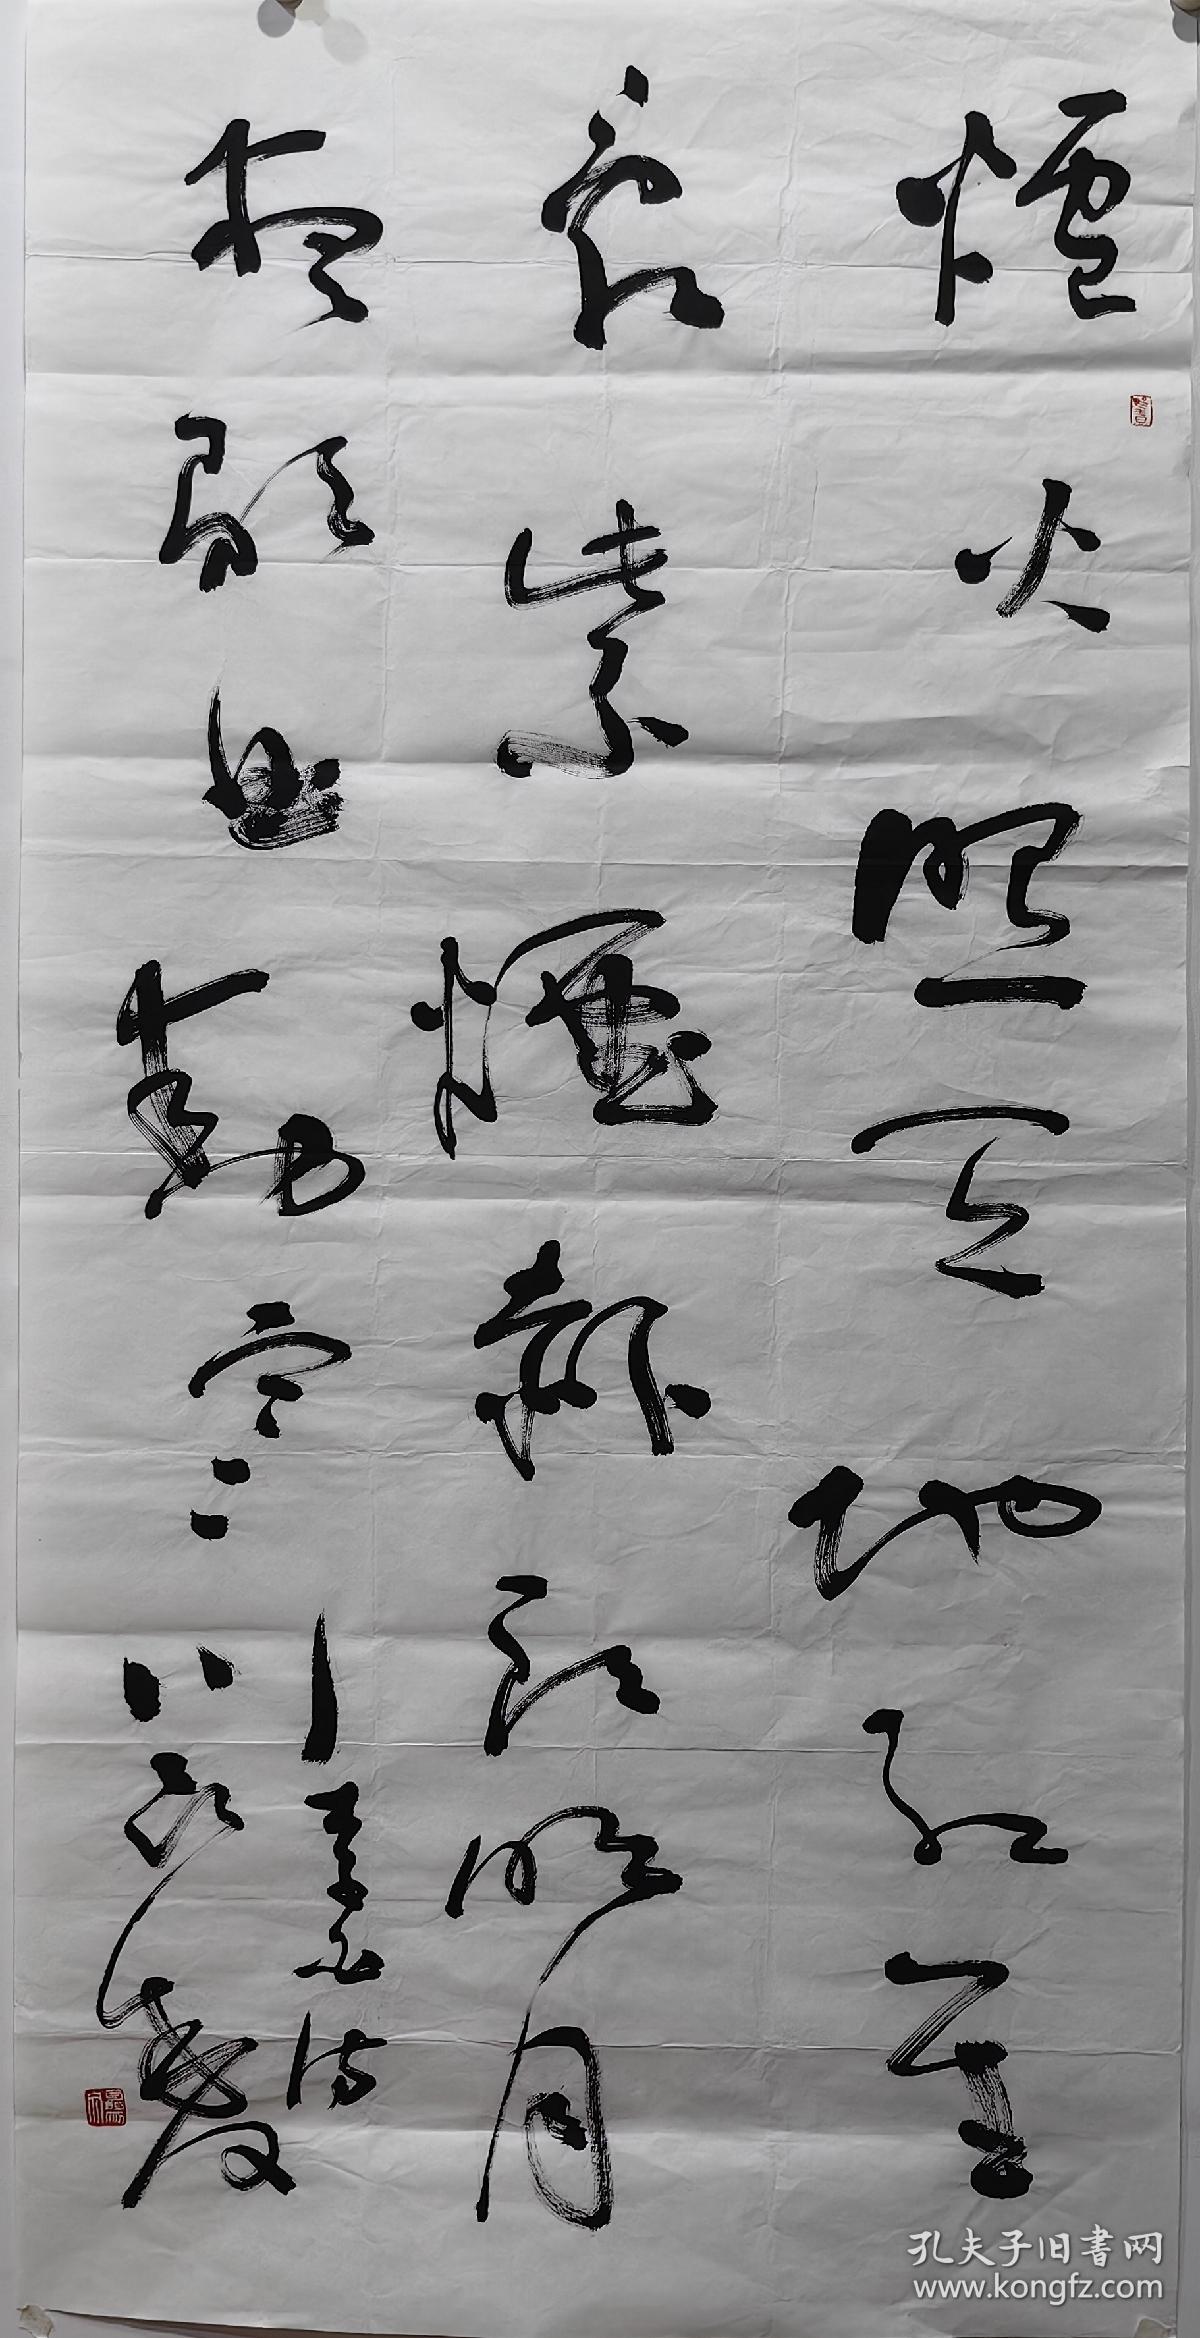 爐火照天地紅星
亂紫煙赧郎明月
夜歌曲動寒
川李白詩
孔夫子旧書网
www.kongfz.com